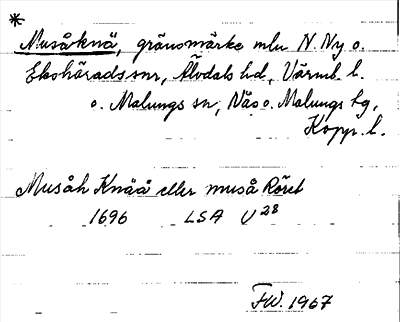 *
Musåknä, gränsmärke mlu N. Ny o.
Ekshäradssnr, Älvdals hd, Värml. l.
o. Malungs sn, Nås o. Malungs tg,
Kopp. l.
Musåh Knää eller muså Röret
1696 LSA U28
FW. 1967